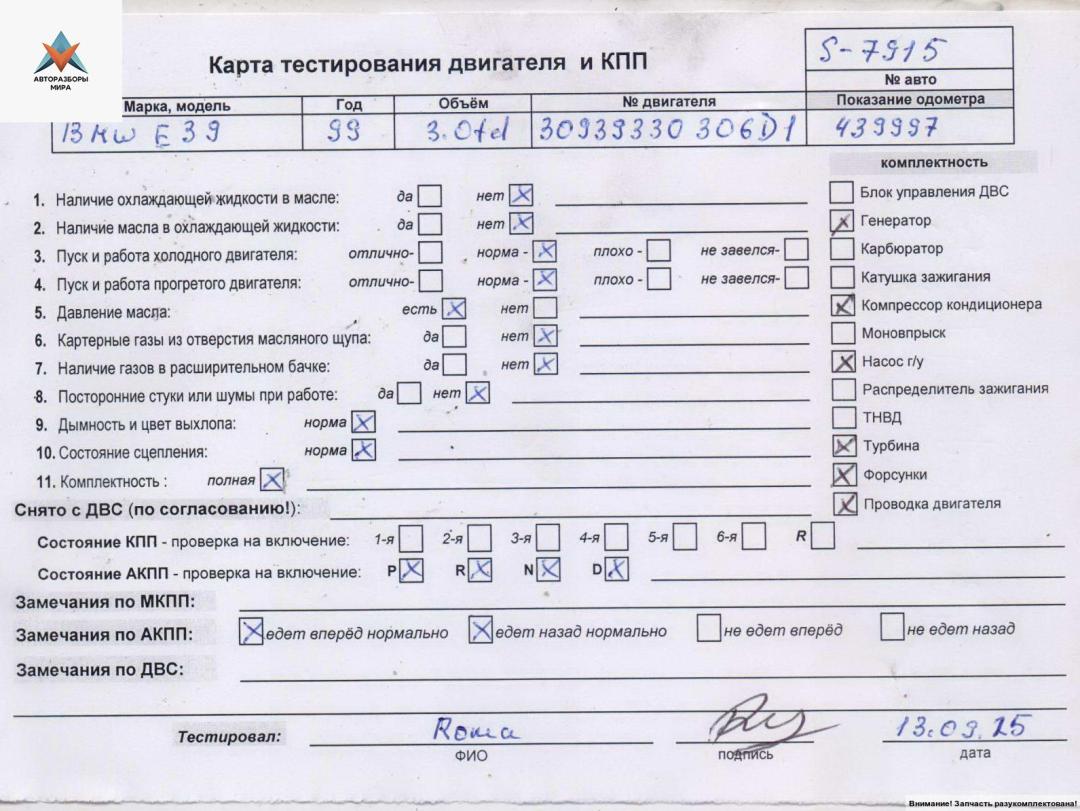 АВТОРАЗБОРЫ
МИРА
S-7915
Карта тестирования двигателя и КПП
№ авто
Марка, модель Год Объём № двигателя Показание одометра
BMW E39 99 3.0td 30939330 306D1 439997
комплектность
1. Наличие охлаждающей жидкости в масле: да нет Блок управления ДВС
2. Наличие масла в охлаждающей жидкости: да нет Генератор
3. Пуск и работа холодного двигателя: отлично- норма - плохо - не завелся- Карбюратор
4. Пуск и работа прогретого двигателя: отлично- норма - плохо - не завелся- Катушка зажигания
5. Давление масла: есть нет Компрессор кондиционера
6. Картерные газы из отверстия масляного щупа: да нет Моновпрыск
7. Наличие газов в расширительном бачке: да нет Насос г/у
8. Посторонние стуки или шумы при работе: да нет Распределитель зажигания
9. Дымность и цвет выхлопа: норма ТНВД
10. Состояние сцепления: норма Турбина
11. Комплектность : полная Форсунки
Снято с ДВС (по согласованию!): Проводка двигателя
Состояние КПП - проверка на включение: 1-я 2-я 3-я 4-я 5-я 6-я R
Состояние АКПП - проверка на включение: P R N D
Замечания по МКПП:
Замечания по АКПП: едет вперёд нормально едет назад нормально не едет вперёд не едет назад
Замечания по ДВС:
Тестировал: Roma 13.09.25
ФИО подпись дата
Внимание! Запчасть разукомплектована!